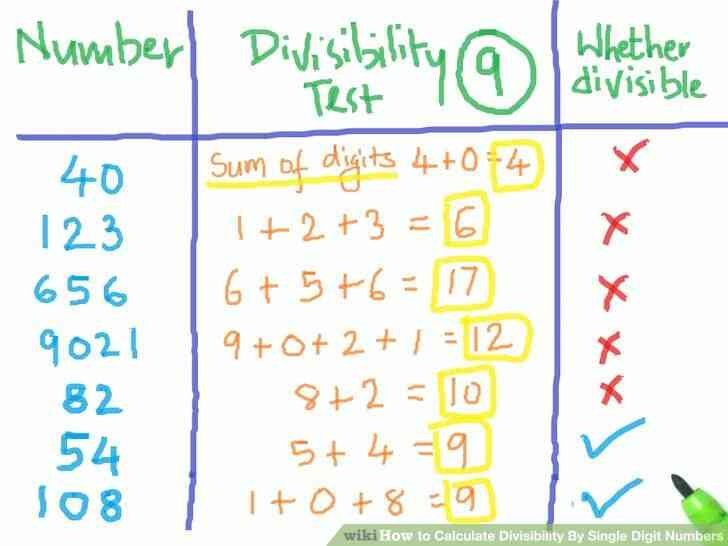 Number Divisibility Test 9 Whether divisible
40 Sum of digits 4+0=4 ✗
123 1+2+3=6 ✗
656 6+5+6=17 ✗
9021 9+0+2+1=12 ✗
82 8+2=10 ✗
54 5+4=9 ✓
108 1+0+8=9 ✓
wikiHow to Calculate Divisibility By Single Digit Numbers